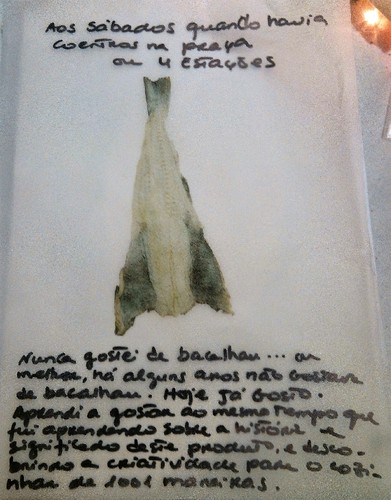 Aos sábados quando havia
coentros na praça
ou 4 Estações
Nunca gostei de bacalhau... ou
melhor, há alguns anos não Gostava
de bacalhau. Hoje já Gosto.
Aprendi a gostar ao mesmo tempo que
fui aprendendo sobre a história e
significado deste produto, e desco-
brindo a criatividade para o cozi-
nhar de 1001 maneiras.